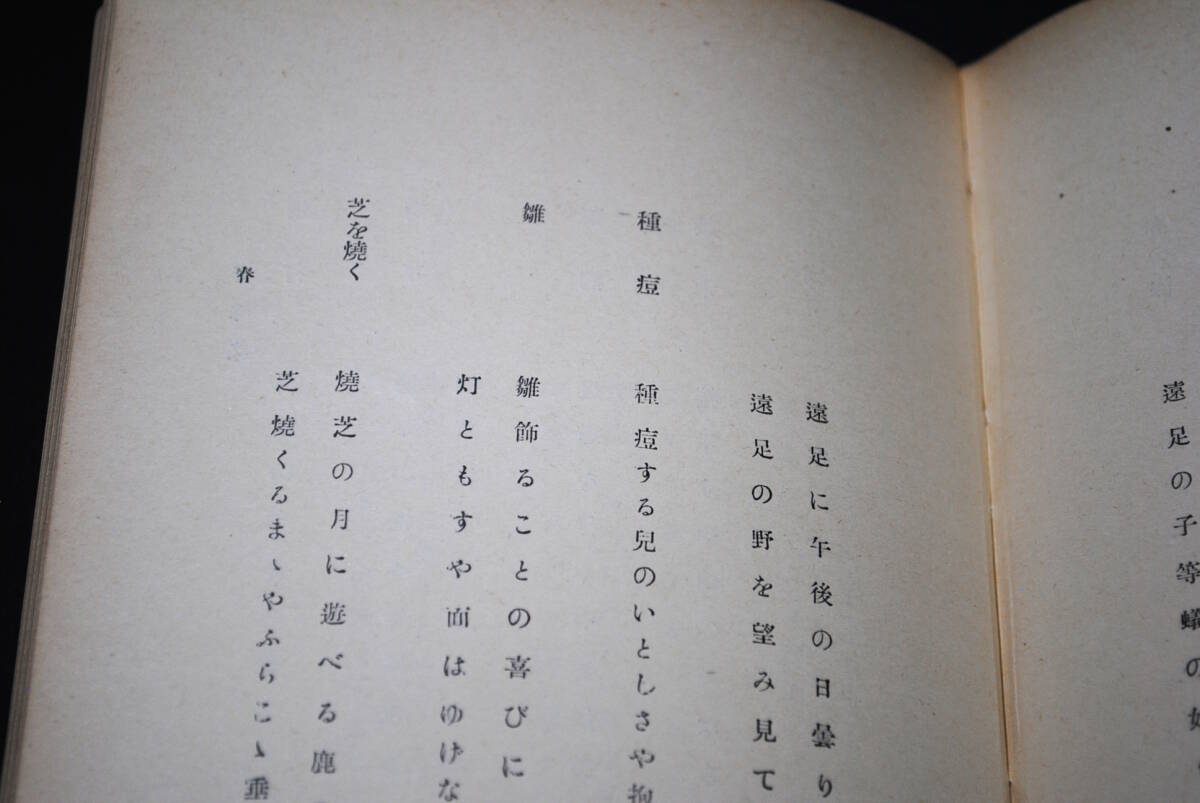 遠足の子等蟻の如
遠足に午後の日曇り
遠足の野を望み見て
種痘
種痘する兒のいとしさや抱
雛
雛飾ることの喜びに
灯ともすや面はゆげな
芝を燒く
燒芝の月に遊べる鹿
芝燒くるまゝやふらこゝ垂
春